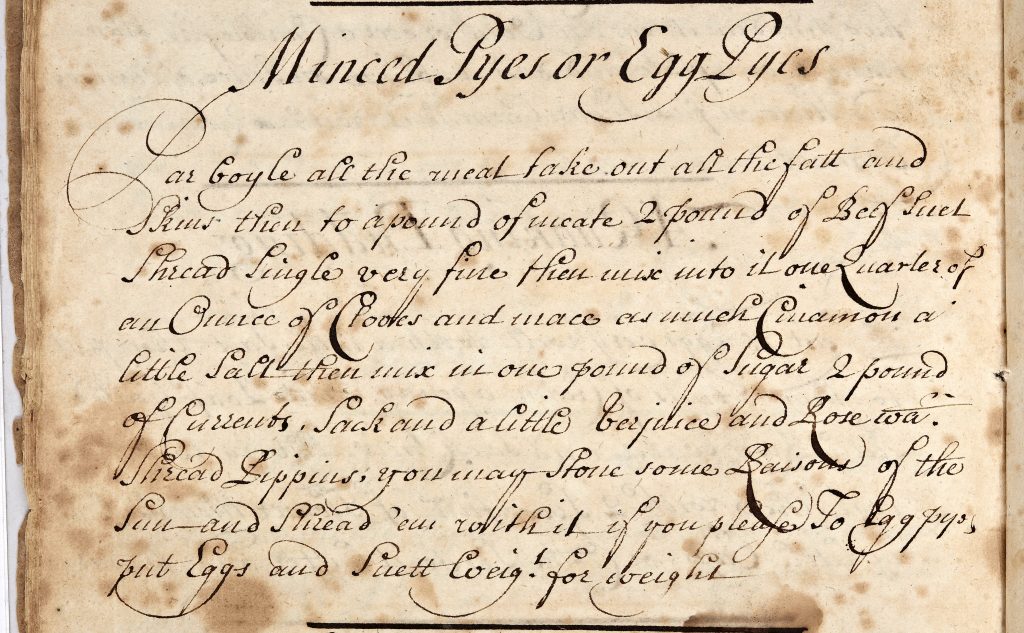 Minced Pyes or Egg Pyes
Par boyle all the meat take out all the fatt and
Skins then to a pound of meate 2 pound of Beef Suet
Shread Single very fine then mix into it one Quarter of
an Ounce of Cloves and mace as much Cinamon a
little Salt then mix in one pound of Sugar 2 pound
of Currents, Sack and a little Verjuice and Rose wa.r
Shread Pippins, you may Stone some Raisons of the
Sun and Shread 'em with it if you please To Egg pys,
put Eggs and Suett Weig.t for weight